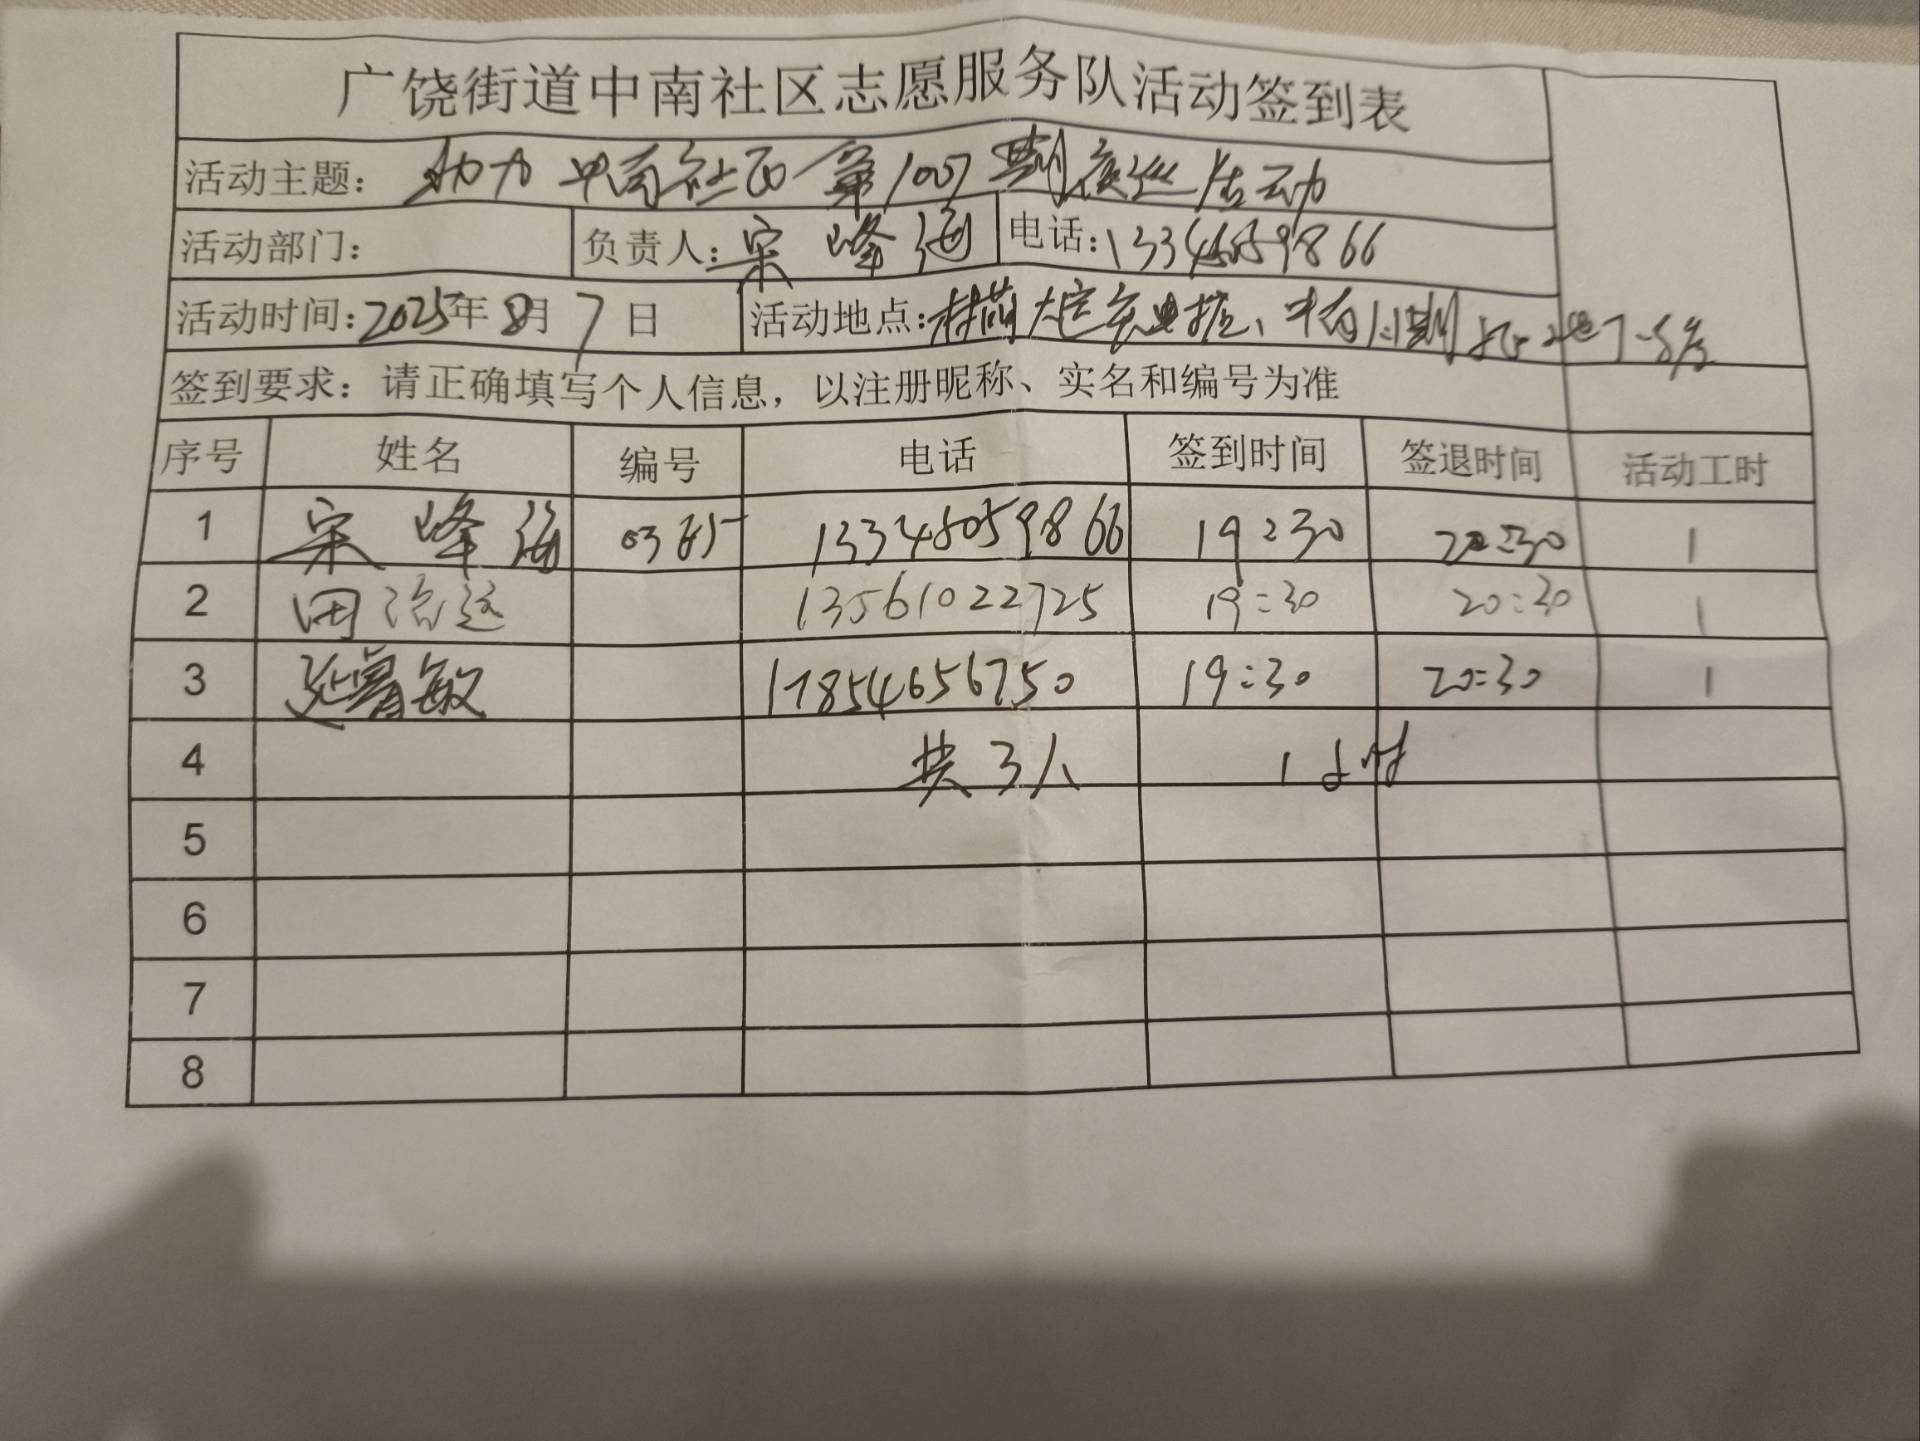 广饶街道中南社区志愿服务队活动签到表
活动主题：助力中南社区第1007期夜巡活动
活动部门： 负责人：宋峰海 电话：13348059866
活动时间：2025年8月7日 活动地点：
签到要求：请正确填写个人信息，以注册昵称、实名和编号为准
序号 姓名 编号 电话 签到时间 签退时间 活动工时
1 宋峰海 13348059866 19:30 20:30 1
2 田治远 13561022725 19:30 20:30 1
3 延 敏 17854656750 19:30 20:30 1
4 共3人 1小时
5
6
7
8